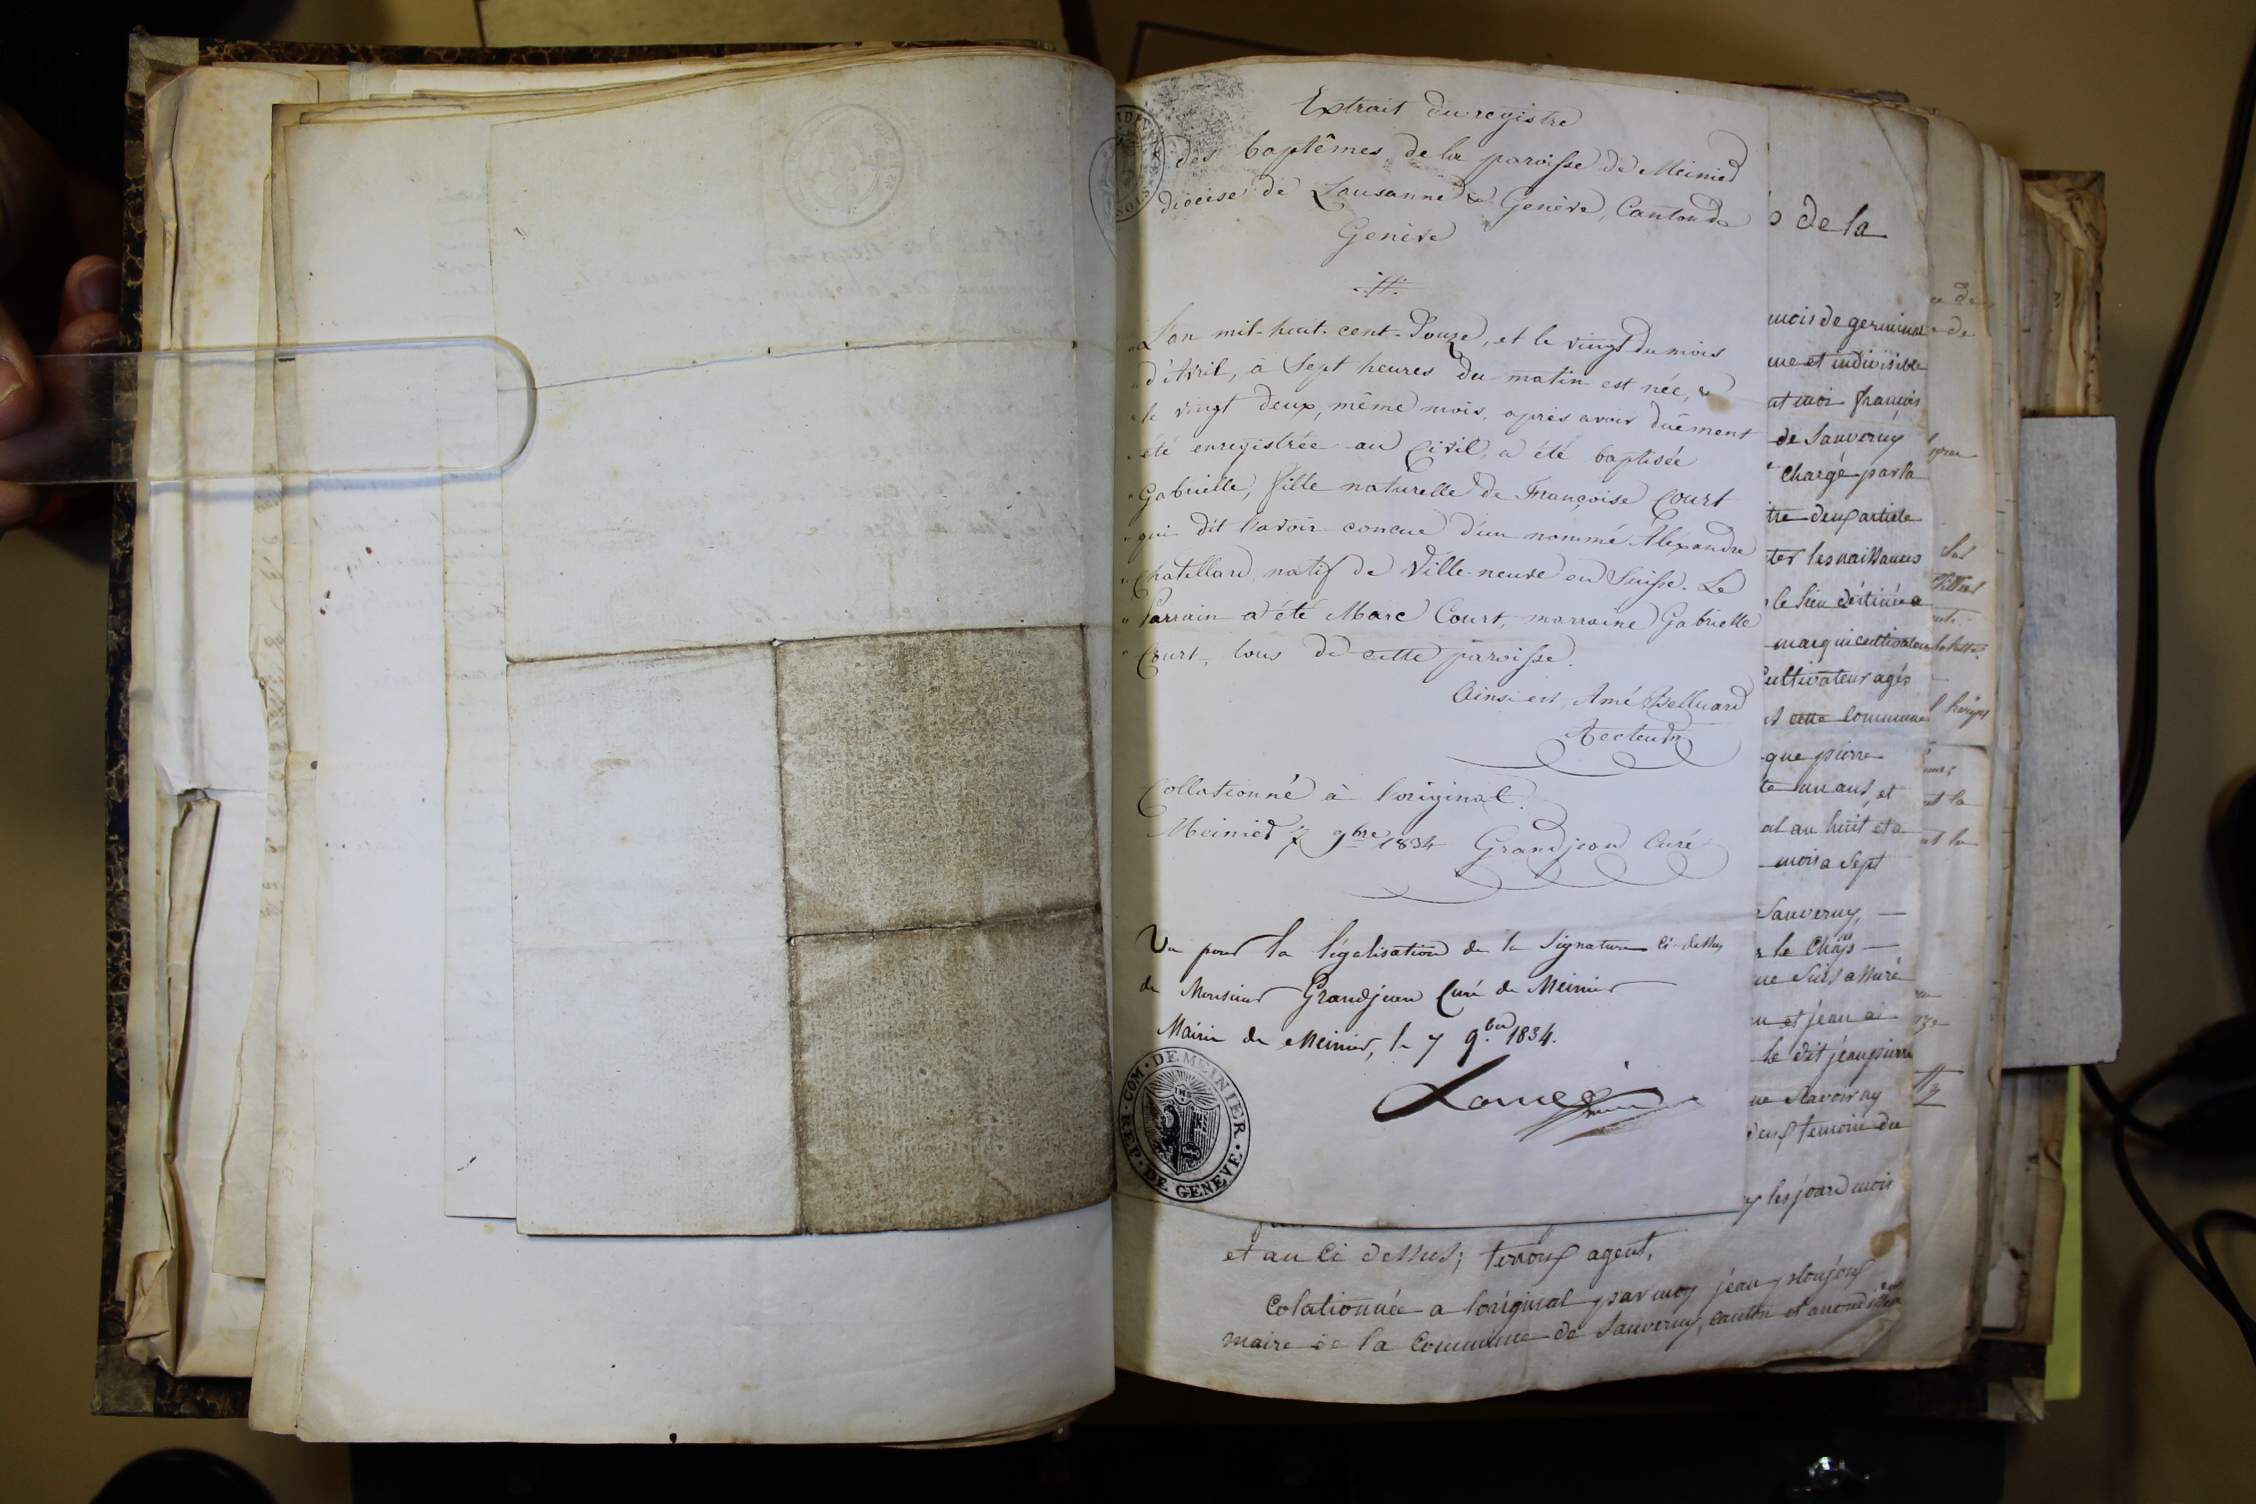 Extrait du registre
des baptêmes de la paroisse de Meinied
diocèse de Lausanne & Genève, Canton de
Genève
L'an mil-huit-cent-Douze, et le vingt du mois
d'Avril, à Sept heures du matin est née, &
le vingt deux, même mois, après avoir duement
été enregistrée au Civil, a été baptisée
Gabrielle, fille naturelle de Françoise Court
qui dit l'avoir concue d'un nommé Alexandre
Chatellard natif de Ville-neuve en Suisse. Le
Parrain a été Marc Court, marraine Gabrielle
Court, tous de cette paroisse.
Ainsi est, Amé Belluard
Recteur
Collationné à l'original.
Meinied 7 9bre 1834 Grandjean Curé
Vu pour la légalisation de la Signature ci-dessus
de Monsieur Grandjean Curé de Meinier
Mairie de Meinier, le 7 9bre 1834.
REP. COM. DE MEINIER. DE GENEVE.
IHS
o de la
mois de germinal
une et indivisible
nt moi françois
de Sauverny
chargé par la
tre deux article
ter les naissances
le lieu déstinée a
cultivateur
Cultivateur agés
cette Commune
que pierre
te un ans, et
al au huit et a
mois a Sept
Sauverny,
ue Suis assuré
u et jean
le dit jean pierre
deux temoin du
y les jour et mois
et an Ci dessus; terroux agent,
Colationnée a loriginal par moy jean
maire de la Commune de Sauverny, canton et